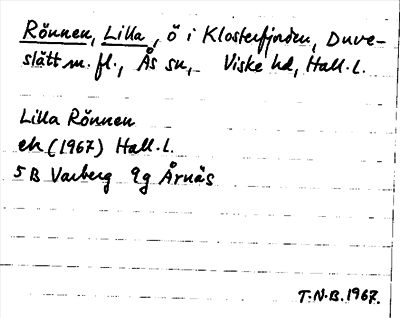 Rönnen, Lilla, ö i Klosterfjorden, Duve-
slätt m. fl., Ås sn, Viske hd, Hall. l.
Lilla Rönnen
ek (1967) Hall. l.
5 B Varberg 9g Årnäs
T.N.B. 1967.